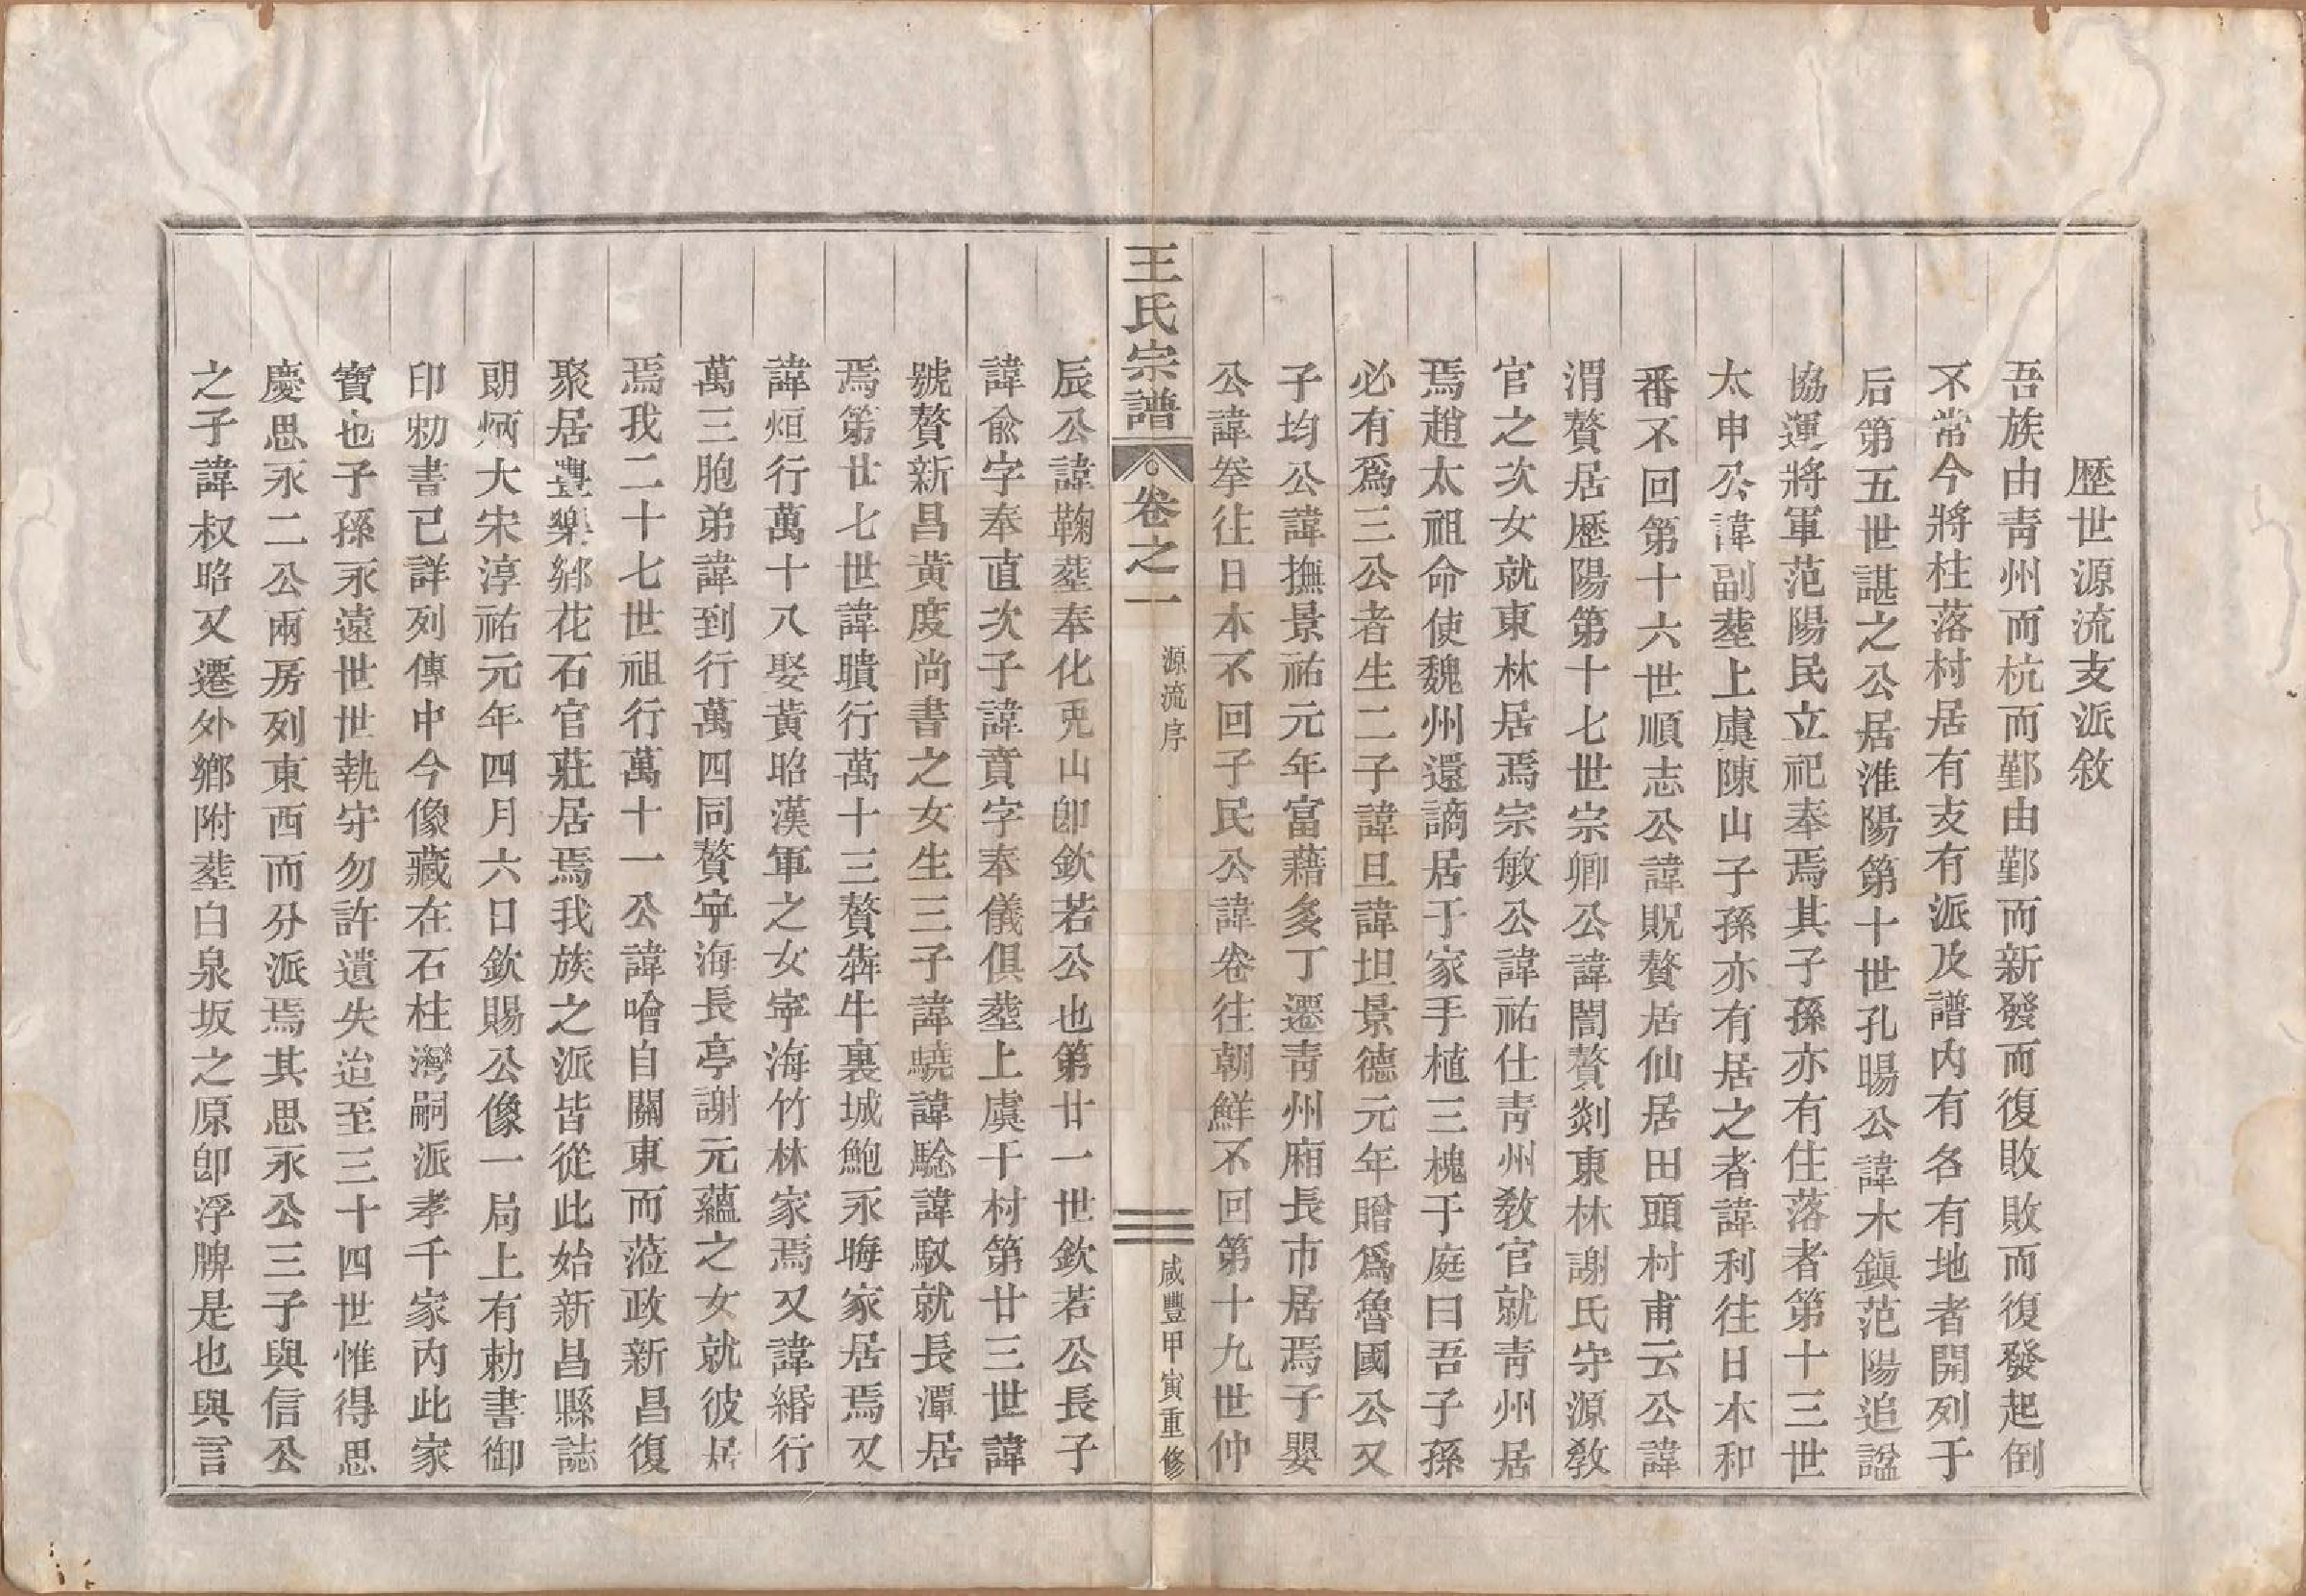 歷世源流支派敘
吾族由靑州而杭而鄞由鄞而新發而復敗敗而復發起倒
不常今將柱落村居有支有派及譜内有各有地者開列于
后第五世諶之公居淮陽第十世孔暘公諱木鎭范陽追諡
協運將軍范陽民立祀奉焉其子孫亦有住落者第十三世
太申公諱副塟上虞陳山子孫亦有居之者諱利往日木和
番不回第十六世順志公諱貺贅居仙居田頭村甫云公諱
渭贅居歷陽第十七世宗卿公諱誾贅剡東林謝氏守源敎
官之次女就東林居焉宗敏公諱祐仕靑州敎官就靑州居
焉趙太祖命使魏州還謫居于家手植三槐于庭曰吾子孫
必有爲三公者生二子諱旦諱坦景德元年贈爲魯國公又
子均公諱撫景祐元年富藉多丁遷靑州廂長市居焉子嬰
公諱拳往日本不回子民公諱卷往朝鮮不回第十九世仲
王氏宗譜 卷之一 源流序 咸豐甲寅重修
辰公諱鞠塟奉化兕山卽欽若公也第廿一世欽若公長子
諱俞字奉直次子諱賁字奉儀俱塟上虞干村第廿三世諱
號贅新昌黃度尚書之女生三子諱驍諱騐諱馭就長潭居
焉第廿七世諱曊行萬十三贅犇牛裏城鮑永晦家居焉又
諱烜行萬十八娶黃昭漢軍之女寧海竹林家焉又諱緡行
萬三胞弟諱到行萬四同贅寧海長亭謝元蘊之女就彼居
焉我二十七世祖行萬十一公諱噲自關東而蒞政新昌復
聚居豐樂鄉花石官莊居焉我族之派皆從此始新昌縣誌
朗炳大宋淳祐元年四月六日欽賜公像一局上有勅書御
印勅書已詳列傳中今像藏在石柱灣嗣派孝千家内此家
寶也子孫永遠世世執守勿許遺失迨至三十四世惟得思
慶思永二公兩房列東西而分派焉其思永公三子與信公
之子諱叔昭又遷外鄉附塟白泉坂之原卽浮牌是也與言